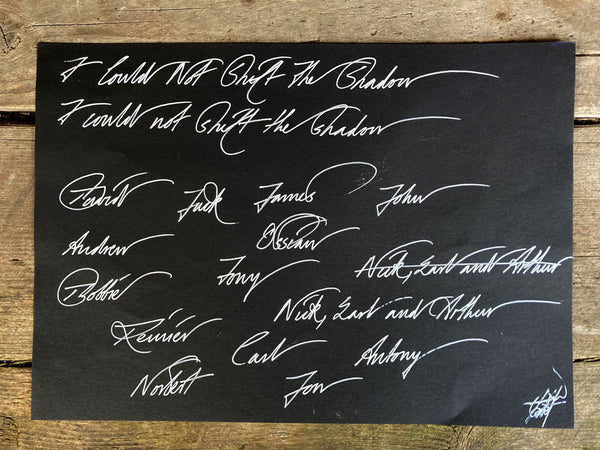 I Could Not Shift The Shadow
I could not shift the shadow
David Jack James John
Andrew Ossian
Robbie Tony Nick, Earl and Arthur
Nick, Earl and Arthur
Reinier Carl Antony
Norbert Jon